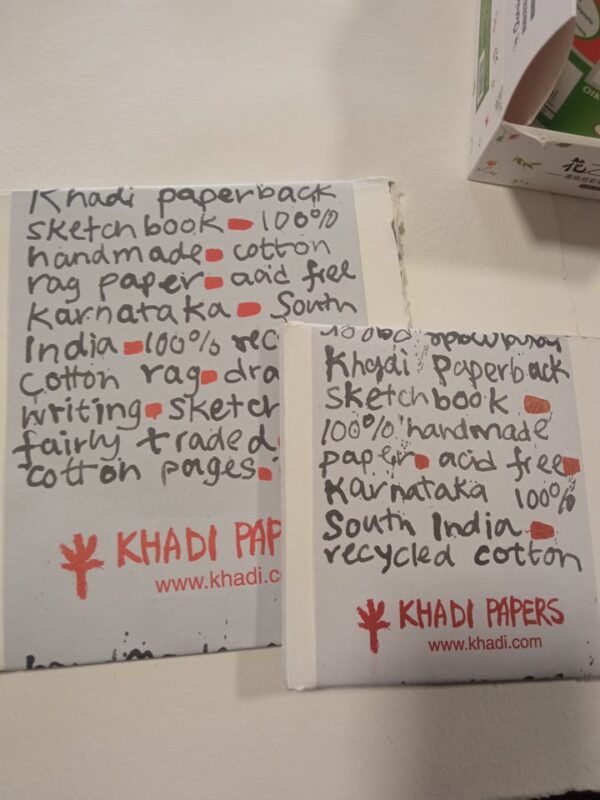 Khadi paperback
sketchbook 100%
handmade cotton
rag paper acid free
Karnataka South
India 100% rec
cotton rag dra
writing sketch
fairly traded
cotton pages
KHADI PAP
www.khadi.c
Khadi Paperback
sketchbook
100% handmade
paper acid free
Karnataka 100%
South India
recycled cotton
KHADI PAPERS
www.khadi.com